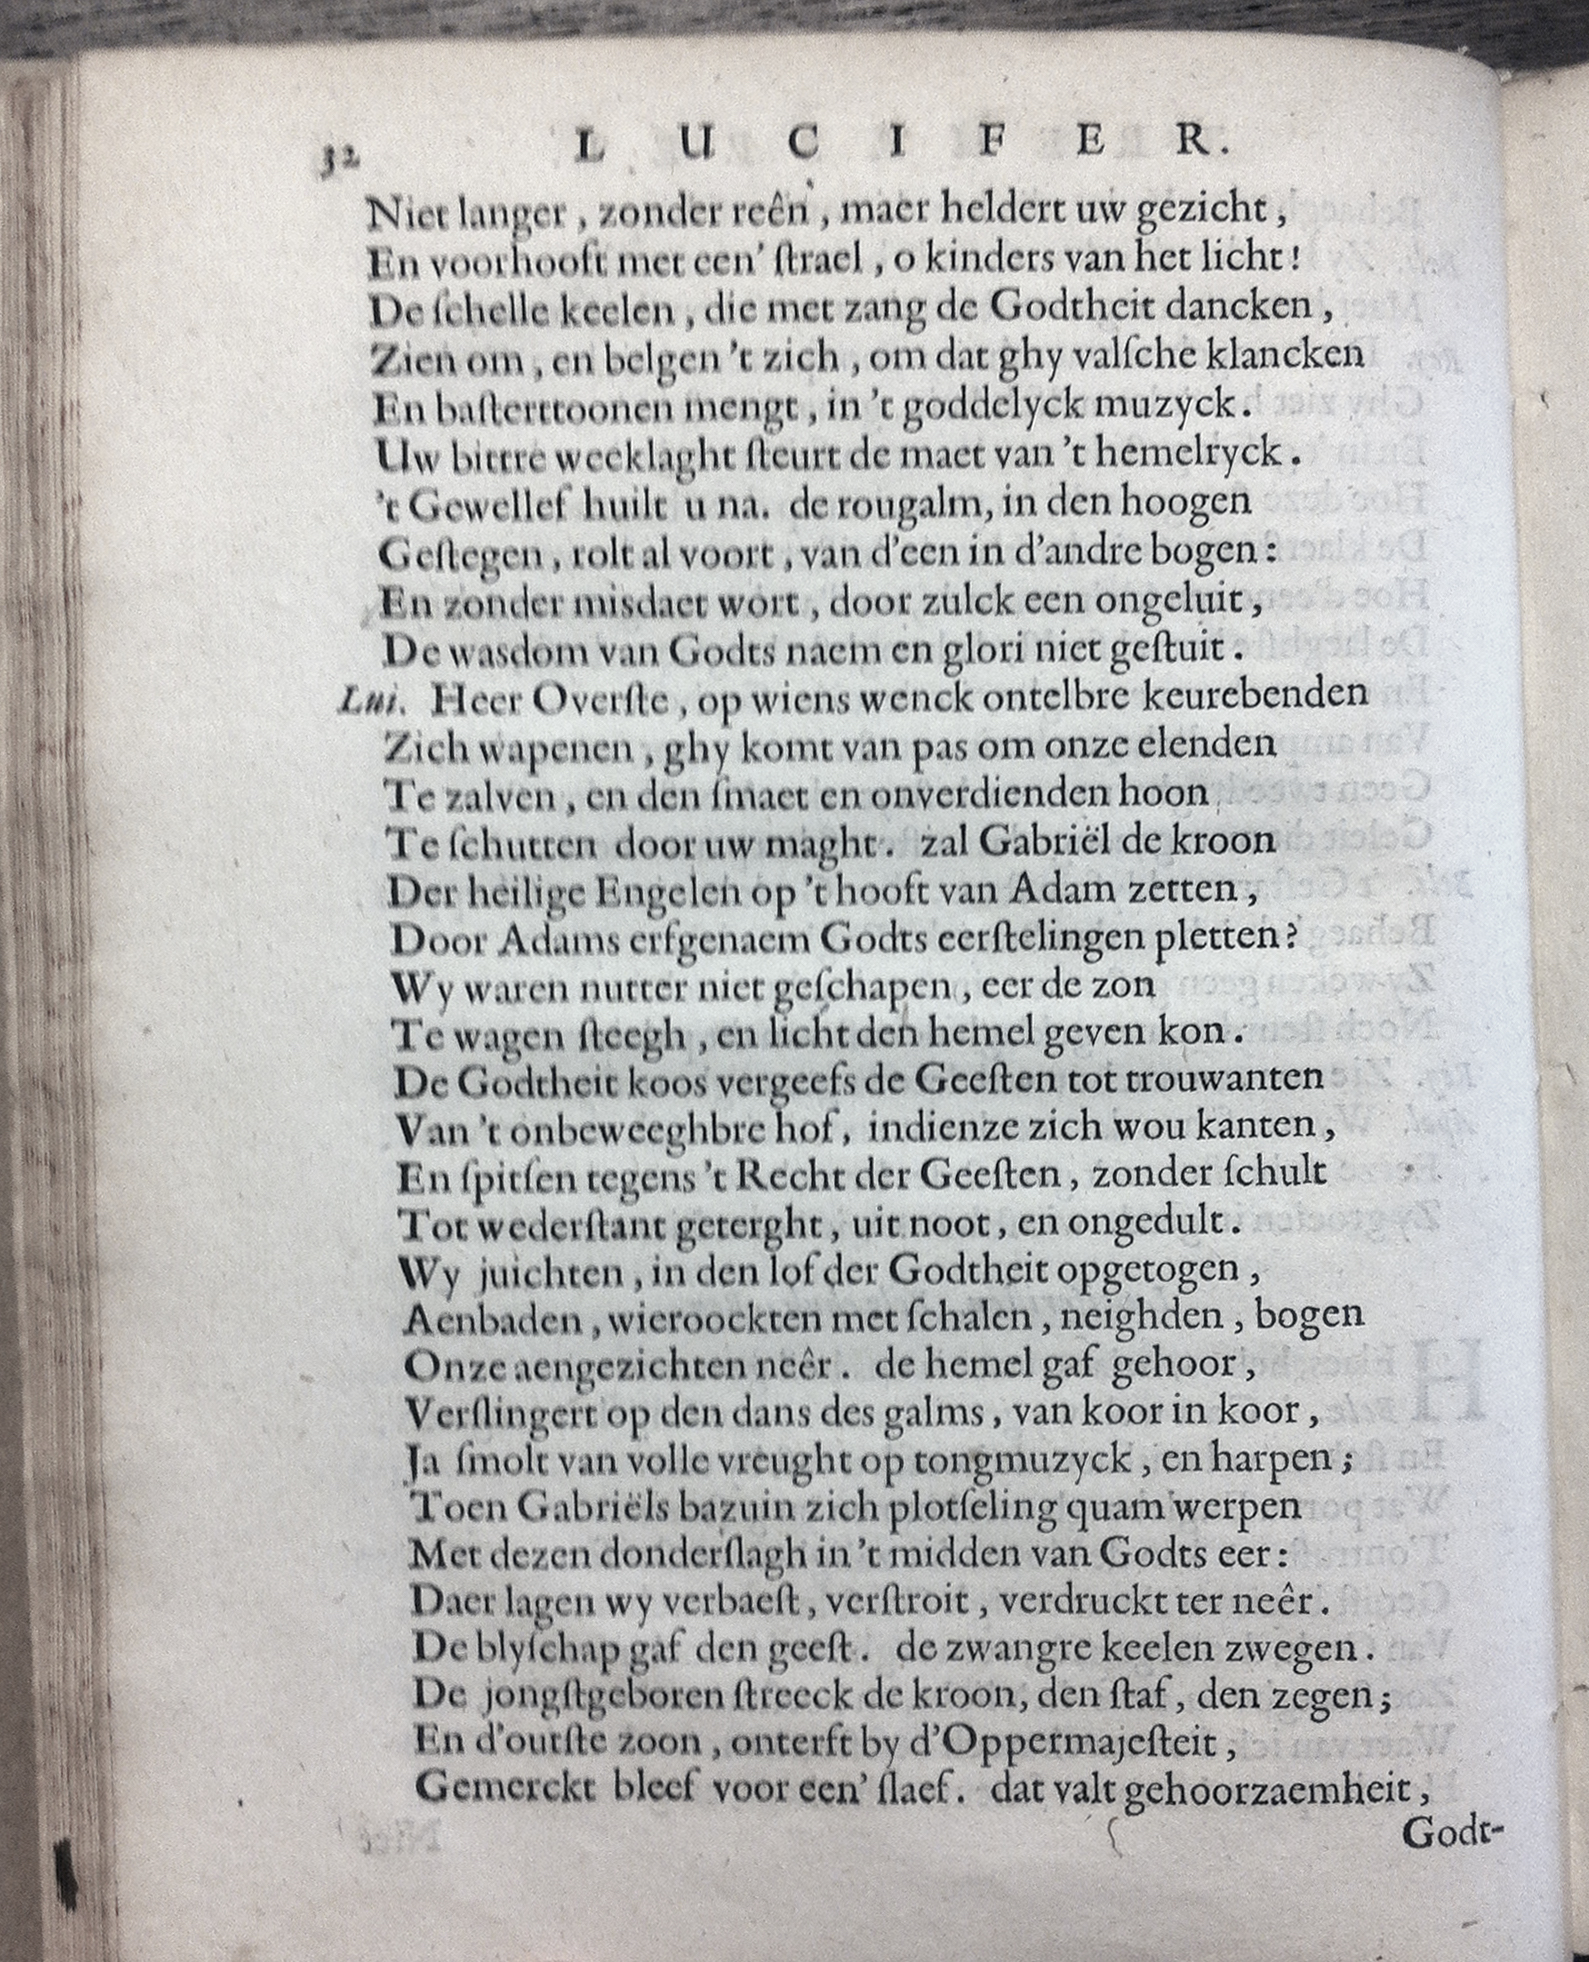 32 LUCIFER.
Niet langer, zonder reên, maer heldert uw gezicht,
En voorhooft met een' ſtrael, o kinders van het licht!
De ſchelle keelen, die met zang de Godtheit dancken,
Zien om, en belgen 't zich, om dat ghy valſche klancken
En baſterttoonen mengt, in 't goddelyck muzyck.
Uw bittre weeklaght ſteurt de maet van 't hemelryck.
't Gewellef huilt u na. de rougalm, in den hoogen
Geſtegen, rolt al voort, van d'een in d'andre bogen:
En zonder misdaet wort, door zulck een ongeluit,
De wasdom van Godts naem en glori niet geſtuit.
Lui. Heer Overſte, op wiens wenck ontelbre keurebenden
Zich wapenen, ghy komt van pas om onze elenden
Te zalven, en den ſmaet en onverdienden hoon
Te ſchutten door uw maght. zal Gabriël de kroon
Der heilige Engelen op 't hooft van Adam zetten,
Door Adams erfgenaem Godts eerſtelingen pletten?
Wy waren nutter niet geſchapen, eer de zon
Te wagen ſteegh, en licht den hemel geven kon.
De Godtheit koos vergeefs de Geeſten tot trouwanten
Van 't onbeweeghbre hof, indienze zich wou kanten,
En ſpitſen tegens 't Recht der Geeſten, zonder ſchult
Tot wederſtant geterght, uit noot, en ongedult.
Wy juichten, in den lof der Godtheit opgetogen,
Aenbaden, wieroockten met ſchalen, neighden, bogen
Onze aengezichten neêr. de hemel gaf gehoor,
Verſlingert op den dans des galms, van koor in koor,
Ja ſmolt van volle vreught op tongmuzyck, en harpen;
Toen Gabriëls bazuin zich plotſeling quam werpen
Met dezen donderſlagh in 't midden van Godts eer:
Daer lagen wy verbaeſt, verſtroit, verdruckt ter neêr.
De blyſchap gaf den geeſt. de zwangre keelen zwegen.
De jongſtgeboren ſtreeck de kroon, den ſtaf, den zegen;
En d'outſte zoon, onterft by d'Oppermajeſteit,
Gemerckt bleef voor een' ſlaef. dat valt gehoorzaemheit,
Godt-